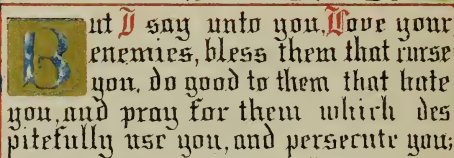 But I say unto you, Love your
enemies, bless them that curse
you, do good to them that hate
you, and pray for them which des
pitefully use you, and persecute you;